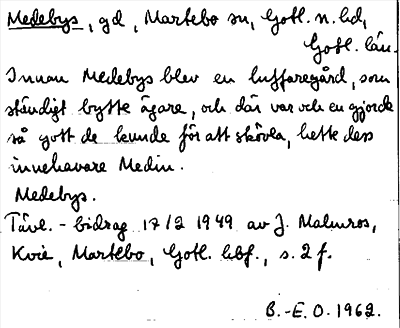 Medebys, gd, Martebo sn, Gotl. n. hd,
Gotl. län.
Innan Medebys blev en luffaregård, som
ständigt bytte ägare, och där var och en gjorde
så gott de kunde för att skövla, hette dess
innehavare Medin.
Medebys.
Tävl.-bidrag 17/2 1949 av J. Malmros,
Kvie, Martebo, Gotl. hbf., s. 2 f.
B.-E. O. 1962.